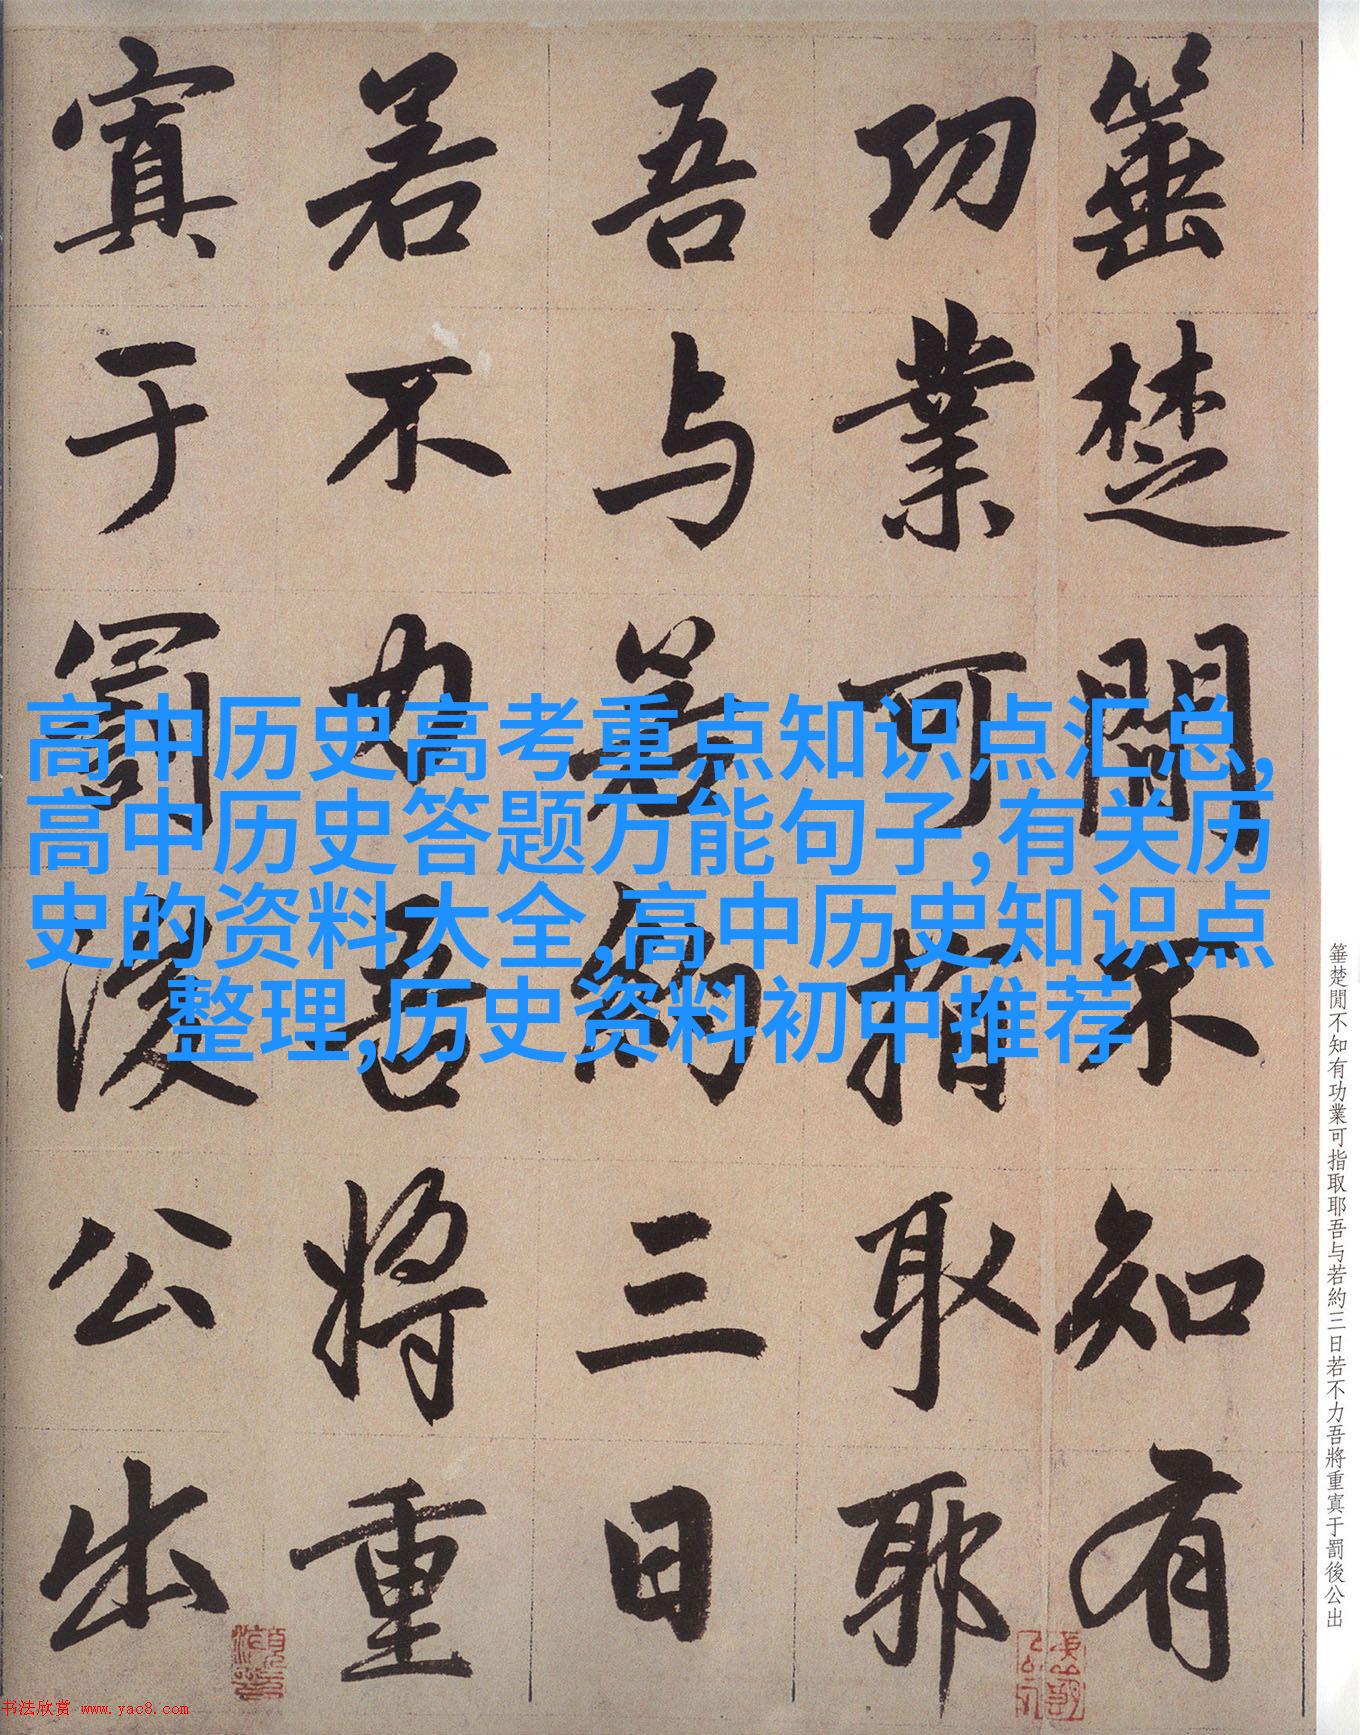 箠楚閒不知有
功業可指取耶
吾与若約三日
若不力吾將重
寘于罰後公出
高中历史高考重点知识点汇总,
高中历史答题万能句子,有关历
史的资料大全,高中历史知识点
整理,历史资料初中推荐
箠楚閒不知有功業可指取耶吾与若約三日若不力吾將重寘于罰後公出
书法欣赏 www.yac8.com